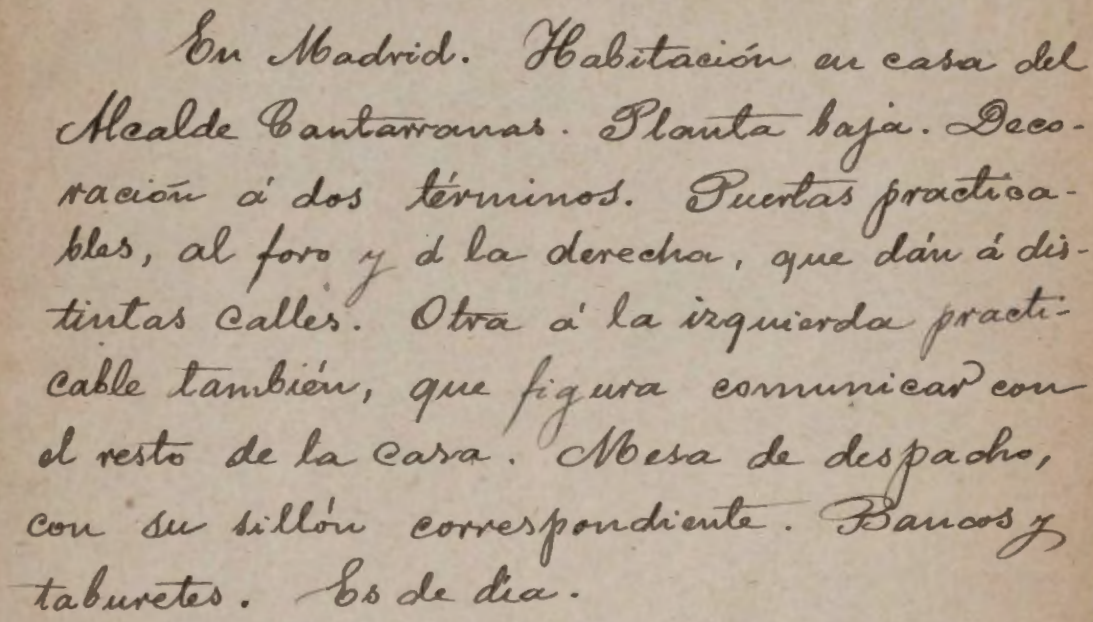 En Madrid. Habitación en casa del
Alcalde Cantarranas. Planta baja. Deco-
ración á dos términos. Puertas practica-
bles, al foro y á la derecha, que dán á dis-
tintas calles. Otra á la izquierda practi-
cable también, que figura comunicar con
el resto de la casa. Mesa de despacho,
con su sillón correspondiente. Bancos y
taburetes. Es de dia.